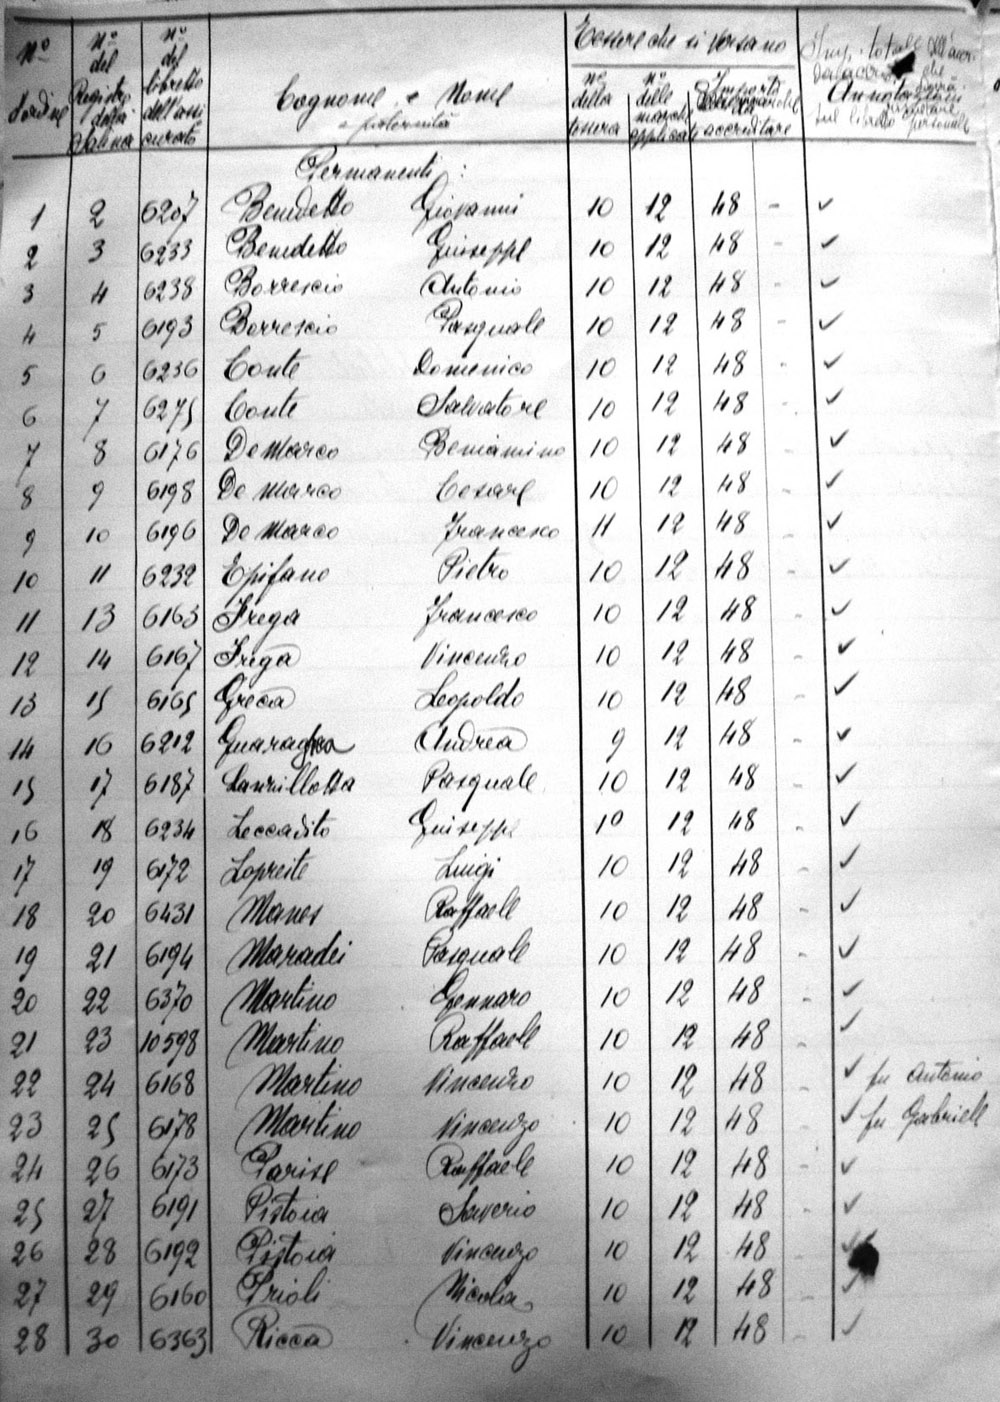 Nº d'ordine
Nº del Registro della Salina
Nº del libretto dell'assicurato
Cognome e Nome
e paternità
Tessere che si versano
nº della tessera
nº delle marche applicate
Importi da accreditare
Imp. totale
Annotazioni
sul libretto personale
Permanenti:
1 2 6207 Benedetto Giovanni 10 12 48 - ✓
2 3 6233 Benedetto Giuseppe 10 12 48 - ✓
3 4 6238 Borrescio Antonio 10 12 48 - ✓
4 5 6193 Borrescio Pasquale 10 12 48 - ✓
5 6 6236 Conte Domenico 10 12 48 - ✓
6 7 6275 Conte Salvatore 10 12 48 - ✓
7 8 6176 De Marco Beniamino 10 12 48 - ✓
8 9 6198 De Marco Cesare 10 12 48 - ✓
9 10 6196 De Marco Francesco 11 12 48 - ✓
10 11 6232 Epifano Pietro 10 12 48 - ✓
11 13 6163 Frega Francesco 10 12 48 - ✓
12 14 6167 Frega Vincenzo 10 12 48 - ✓
13 15 6165 Greca Leopoldo 10 12 48 - ✓
14 16 6212 Guaragna Andrea 9 12 48 - ✓
15 17 6187 Laurillotta Pasquale 10 12 48 - ✓
16 18 6234 Leccadito Giuseppe 10 12 48 - ✓
17 19 6172 Lopreite Luigi 10 12 48 - ✓
18 20 6431 Manes Raffaele 10 12 48 - ✓
19 21 6194 Maradei Pasquale 10 12 48 - ✓
20 22 6370 Martino Gennaro 10 12 48 - ✓
21 23 10598 Martino Raffaele 10 12 48 - ✓
22 24 6168 Martino Vincenzo 10 12 48 - ✓ fu Antonio
23 25 6178 Martino Vincenzo 10 12 48 - ✓ fu Gabriele
24 26 6173 Parise Raffaele 10 12 48 - ✓
25 27 6191 Pistoia Saverio 10 12 48 - ✓
26 28 6192 Pistoia Vincenzo 10 12 48 - ✓
27 29 6160 Prioli Nicola 10 12 48 - ✓
28 30 6363 Ricca Vincenzo 10 12 48 - ✓